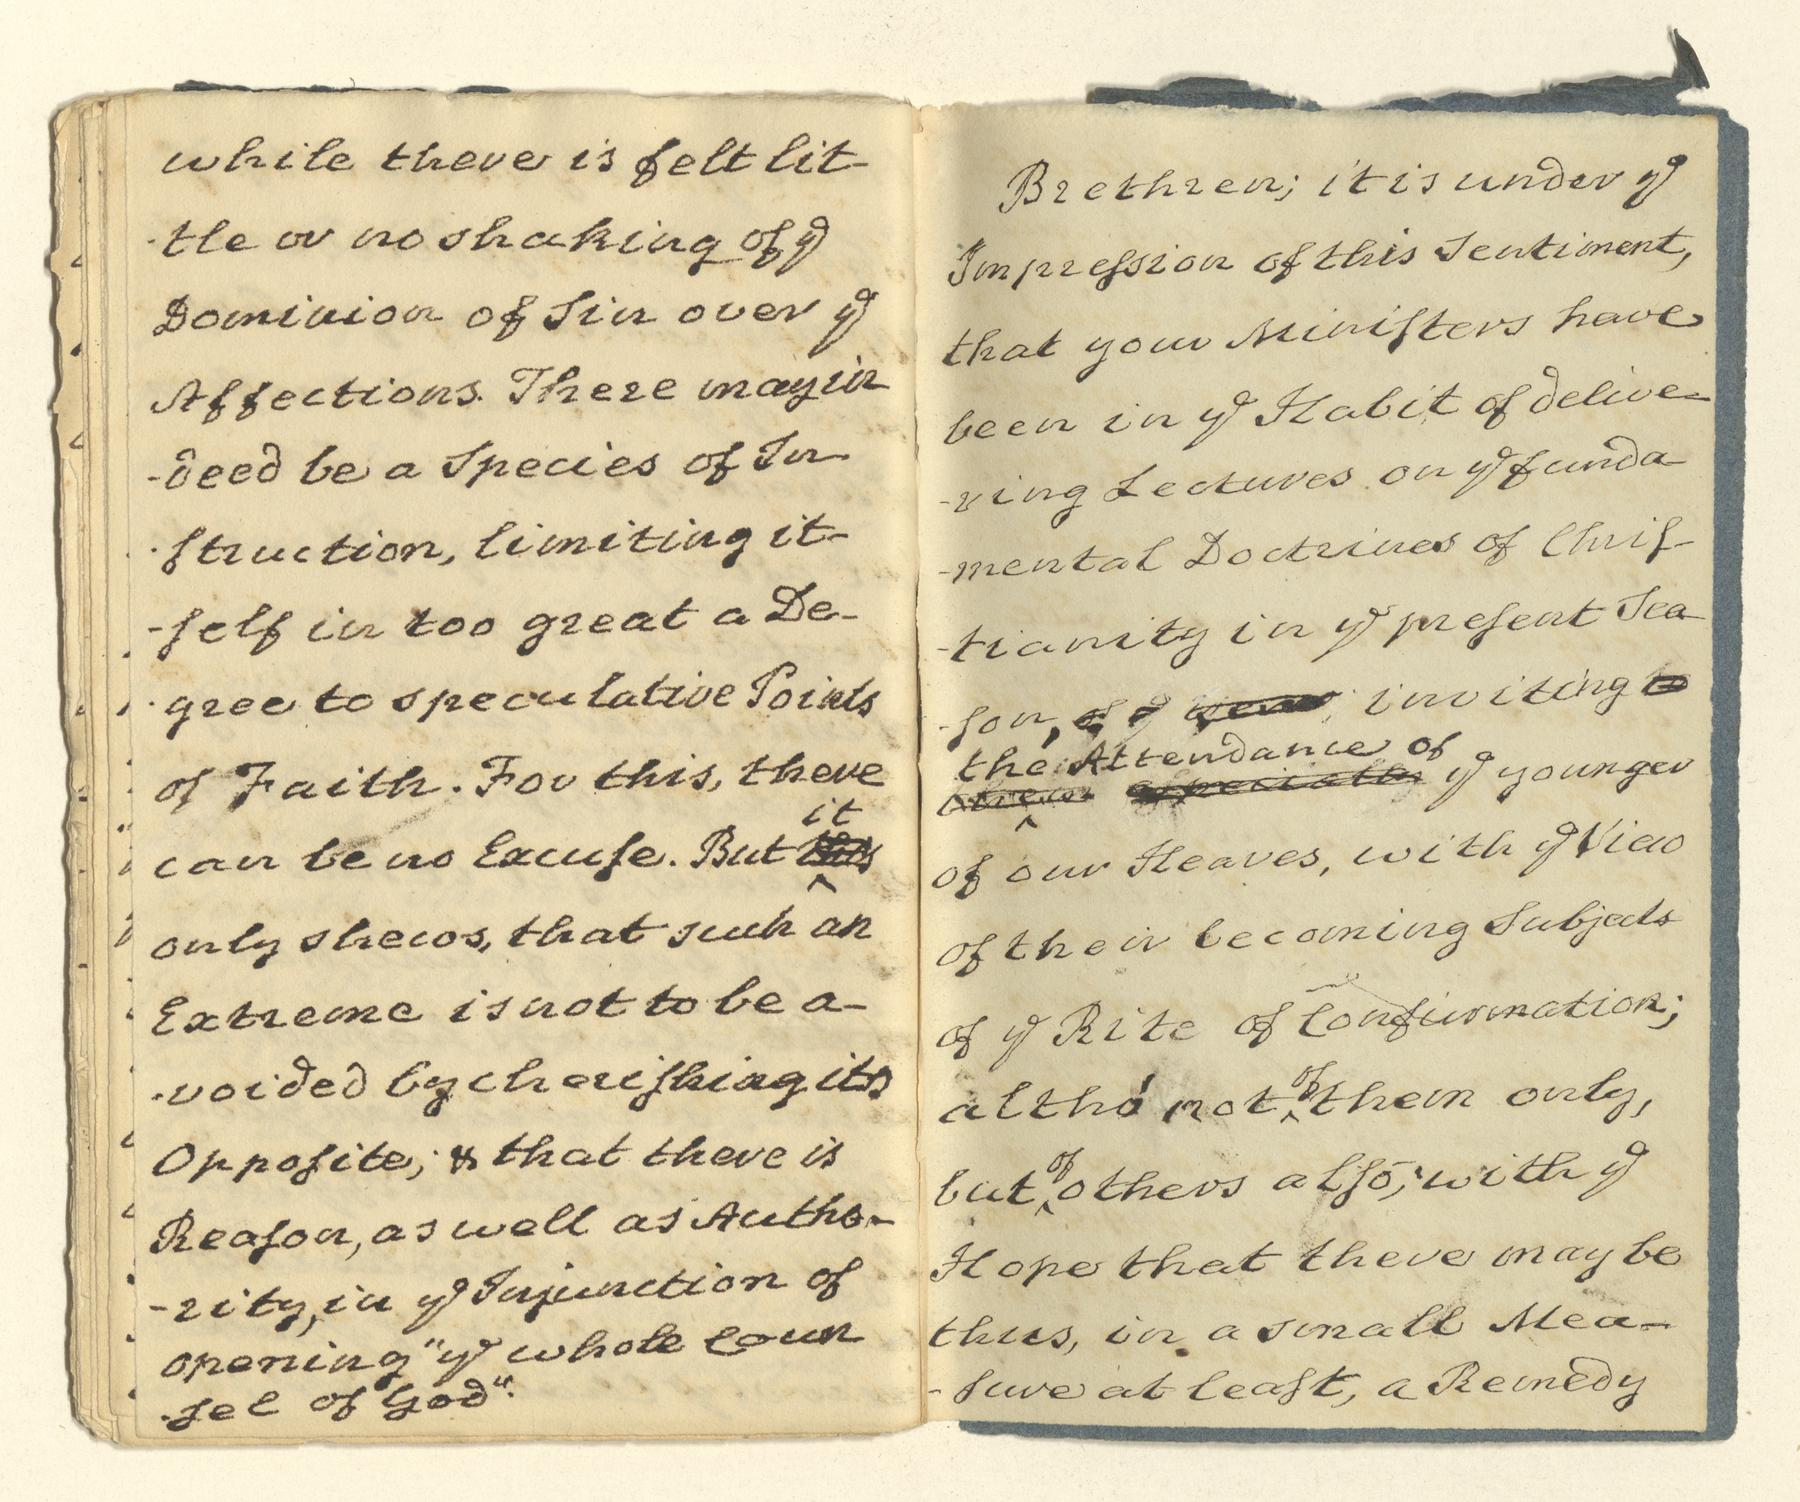 while there is felt lit-
-tle or no shaking of ye
Dominion of Sin over ye
Affections. There may in
-deed be a Species of In-
-struction, limiting it-
-self in too great a De-
-gree to speculative Points
of Faith. For this, there
it
can be no Excuse. But this
only shews, that such an
Extreme is not to be a-
-voided by cherishing its
Opposite; & that there is
Reason, as well as Autho-
-rity, in ye Injunction of
opening "ye whole Coun
-sel of God".
Brethren; it is under ye
Impression of this Sentiment,
that your Ministers have
been in ye Habit of delive-
-ring Lectures on ye funda-
-mental Doctrines of Chris-
-tianity in ye present Sea-
-son, of ye inviting to
the Attendance of
especially ye younger
of our Heares, with ye View
of their becoming Subjects
of ye Rite of Confirmation;
of
altho' not them only,
of
but others also; with ye
Hope that there may be
thus, in a small Mea-
-sure at least, a Remedy